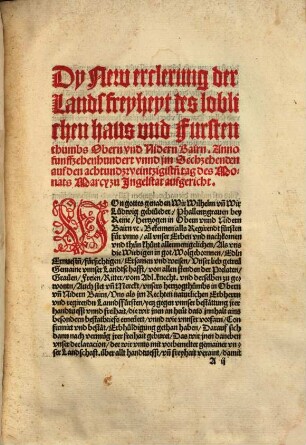 Dy New erclerung der
Landßfreyheyt des lobli
chen haus vnd Fursten
thumbs Obern vnd Nidern Bairn. Anno
funfftzehenhundert vnnd im Sechzehenden
auf den achtundzweintzigistn tag des Mo-
nats Marcy zu Ingelstat aufgericht.
VOn gottes genaden Wir Wilhelm vñ Wir
Ludwig gebrüeder, Phallenngrauen bey
Reine, Hertzogen in Obern vnnd Nidern
Bairn ꝛc. Bekennen alls Regierend fürsten
für vnns, all vnser Erben vnd nachkomen
vnd thün khunt allermenigclichen, Als vnns
die Wirdigen in got, Wolgebornnen, Edln
Ernuesstn, fürsichtigen, Ersamen vnd weysen, Vnser lieb getrew
Gemaine vnnser Landtschafft, von allen stenden der Prelaten,
Grauen, Freien, Ritter, von Adl, knecht, vnd derselben zu ge-
wonten, Auch stet vñ Märckt, vnnsers hertzogthumbs in Obern
vñ Nidern Bairn, Vns als jrn Rechten natürlichen Erbherrn
vnd regirendn Landssfürsten, yetz gegen vnser bestättung jrer
handtuesst vnnd freihait, die wir jnen an heut dato jnnhalt ains
besondern bestatbriefs ernewert, vnnd wie vnnser vorfarn, Con-
firmirt vnd bestät, Erbhuldigung gethan haben, Darauf sich
dann nach vermög jrer freihait gebüret, Das wir jnen daneben
vnser declaracion, der wir vnns mit vorbemelter gemainer vn-
ser Landschafft, über allt handtuesst, vñ freyhait verainet, damit
A ij